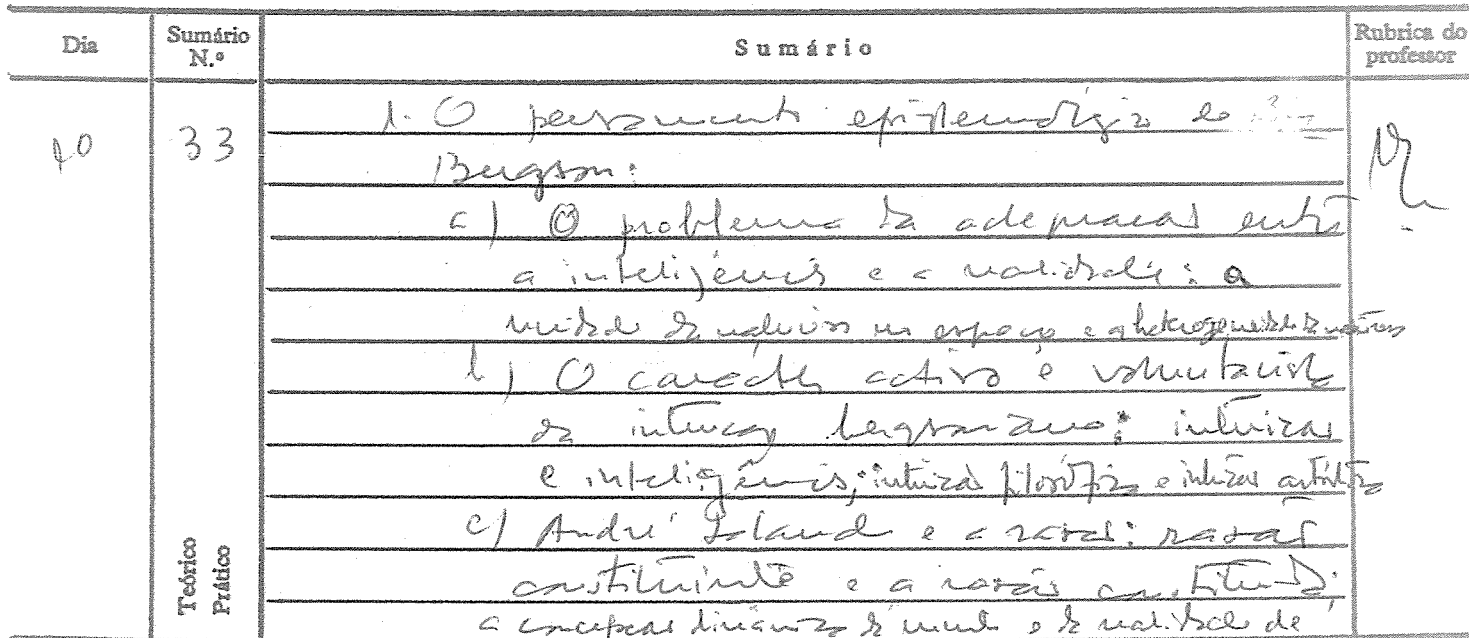 Dia
Sumário N.º
Sumário
Rubrica do professor
10
33
1. O pensamento epistemológico de
Bergson:
a) O problema da adequação entre
a inteligência e a realidade: a
no espaço e a heterogeneidade
b) O carácter activo e voluntarista
da intuição bergsoniana: intuição
e inteligência; intuição filosófica e intuição artística
c) André Lalande e a razão: razão
constituinte e a razão constituída:
a concepção dinâmica do mundo e da realidade de
Teórico
Prático